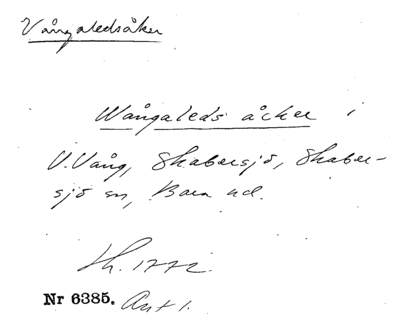 Vångaledsåker
Wångaleds åcker i
V. Vång, Skabersjö, Skaber-
sjö sn, Bara hd.
Sk. 1772.
Nr 6385. Avt 1.